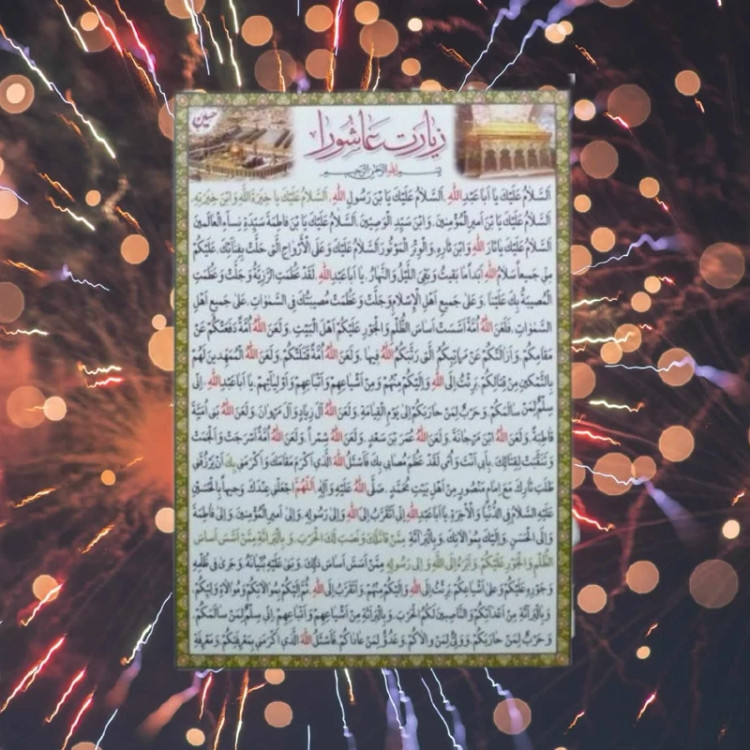 حسین
زیارت عاشورا
بسم الله الرحمن الرحیم
اَلسَّلامُ عَلَيْكَ يا اَبا عَبْدِ اللهِ اَلسَّلامُ عَلَيْكَ يَا بْنَ رَسُولِ اللهِ اَلسَّلامُ عَلَيْكَ يا خِيَرَةَ اللهِ وَابْنَ خِيَرَتِهِ
اَلسَّلامُ عَلَيْكَ يَا بْنَ اَميرِ الْمُؤْمِنينَ وَابْنَ سَيِّدِ الْوَصِيّينَ اَلسَّلامُ عَلَيْكَ يَا بْنَ فاطِمَةَ سَيِّدَةِ نِساءِ الْعالَمينَ
اَلسَّلامُ عَلَيْكَ يا ثارَ اللهِ وَابْنَ ثارِهِ وَالْوِتْرَ الْمَوْتُورَ اَلسَّلامُ عَلَيْكَ وَعَلَى الْاَرْواحِ الَّتى حَلَّتْ بِفِنائِكَ عَلَيْكُمْ
مِنّى جَميعاً سَلامُ اللهِ اَبَداً ما بَقيتُ وَبَقِىَ اللَّيْلُ وَالنَّهارُ يا اَبا عَبْدِ اللهِ لَقَدْ عَظُمَتِ الرَّزِيَّةُ وَجَلَّتْ وَعَظُمَتِ
الْمُصيبَةُ بِكَ عَلَيْنا وَعَلى جَميعِ اَهْلِ الْاِسْلامِ وَجَلَّتْ وَعَظُمَتْ مُصيبَتُكَ فِى السَّمٰواتِ عَلى جَميعِ اَهْلِ
السَّمٰواتِ فَلَعَنَ اللهُ اُمَّةً اَسَّسَتْ اَساسَ الظُّلْمِ وَالْجَوْرِ عَلَيْكُمْ اَهْلَ الْبَيْتِ وَلَعَنَ اللهُ اُمَّةً دَفَعَتْكُمْ عَنْ
مَقامِكُمْ وَاَزالَتْكُمْ عَنْ مَراتِبِكُمُ الَّتى رَتَّبَكُمُ اللهُ فيها وَلَعَنَ اللهُ اُمَّةً قَتَلَتْكُمْ وَلَعَنَ اللهُ الْمُمَهِّدينَ لَهُمْ
بِالتَّمْكينِ مِنْ قِتالِكُمْ بَرِئْتُ اِلَى اللهِ وَاِلَيْكُمْ مِنْهُمْ وَمِنْ اَشْياعِهِمْ وَاَتْباعِهِمْ وَاَوْلِيائِهِمْ يا اَبا عَبْدِ اللهِ اِنّى
سِلْمٌ لِمَنْ سالَمَكُمْ وَحَرْبٌ لِمَنْ حارَبَكُمْ اِلى يَوْمِ الْقِيامَةِ وَلَعَنَ اللهُ آلَ زِيادٍ وَآلَ مَرْوانَ وَلَعَنَ اللهُ بَنى اُمَيَّةَ
قاطِبَةً وَلَعَنَ اللهُ ابْنَ مَرْجانَةَ وَلَعَنَ اللهُ عُمَرَ بْنَ سَعْدٍ وَلَعَنَ اللهُ شِمْراً وَلَعَنَ اللهُ اُمَّةً اَسْرَجَتْ وَاَلْجَمَتْ
وَتَنَقَّبَتْ لِقِتالِكَ بِاَبى اَنْتَ وَاُمّى لَقَدْ عَظُمَ مُصابى بِكَ فَاَسْئَلُ اللهَ الَّذى اَكْرَمَ مَقامَكَ وَاَكْرَمَنى بِكَ اَنْ يَرْزُقَنى
طَلَبَ ثارِكَ مَعَ اِمامٍ مَنْصُورٍ مِنْ اَهْلِ بَيْتِ مُحَمَّدٍ صَلَّى اللهُ عَلَيْهِ وَآلِهِ اَللّهُمَّ اجْعَلْنى عِنْدَكَ وَجيهاً بِالْحُسَيْنِ
عَلَيْهِ السَّلامُ فِى الدُّنْيا وَالْآخِرَةِ يا اَبا عَبْدِ اللهِ اِنّى اَتَقَرَّبُ اِلَى اللهِ وَاِلى رَسُولِهِ وَاِلى اَميرِ الْمُؤْمِنينَ وَاِلى فاطِمَةَ
وَاِلَى الْحَسَنِ وَاِلَيْكَ بِمُوالاتِكَ وَبِالْبَرائَةِ مِمَّنْ قاتَلَكَ وَنَصَبَ لَكَ الْحَرْبَ وَبِالْبَرائَةِ مِمَّنْ اَسَّسَ اَساسَ
الظُّلْمِ وَالْجَوْرِ عَلَيْكُمْ وَاَبْرَءُ اِلَى اللهِ وَاِلى رَسُولِهِ مِمَّنْ اَسَّسَ اَساسَ ذٰلِكَ وَبَنى عَلَيْهِ بُنْيانَهُ وَجَرى فى ظُلْمِهِ
وَجَوْرِهِ عَلَيْكُمْ وَعَلى اَشْياعِكُمْ بَرِئْتُ اِلَى اللهِ وَاِلَيْكُمْ مِنْهُمْ وَاَتَقَرَّبُ اِلَى اللهِ ثُمَّ اِلَيْكُمْ بِمُوالاتِكُمْ وَمُوالاةِ وَلِيِّكُمْ
وَبِالْبَرائَةِ مِنْ اَعْدائِكُمْ وَالنّاصِبينَ لَكُمُ الْحَرْبَ وَبِالْبَرائَةِ مِنْ اَشْياعِهِمْ وَاَتْباعِهِمْ اِنّى سِلْمٌ لِمَنْ سالَمَكُمْ
وَحَرْبٌ لِمَنْ حارَبَكُمْ وَوَلِىٌّ لِمَنْ والاكُمْ وَعَدُوٌّ لِمَنْ عاداكُمْ فَاَسْئَلُ اللهَ الَّذى اَكْرَمَنى بِمَعْرِفَتِكُمْ وَمَعْرِفَةِ